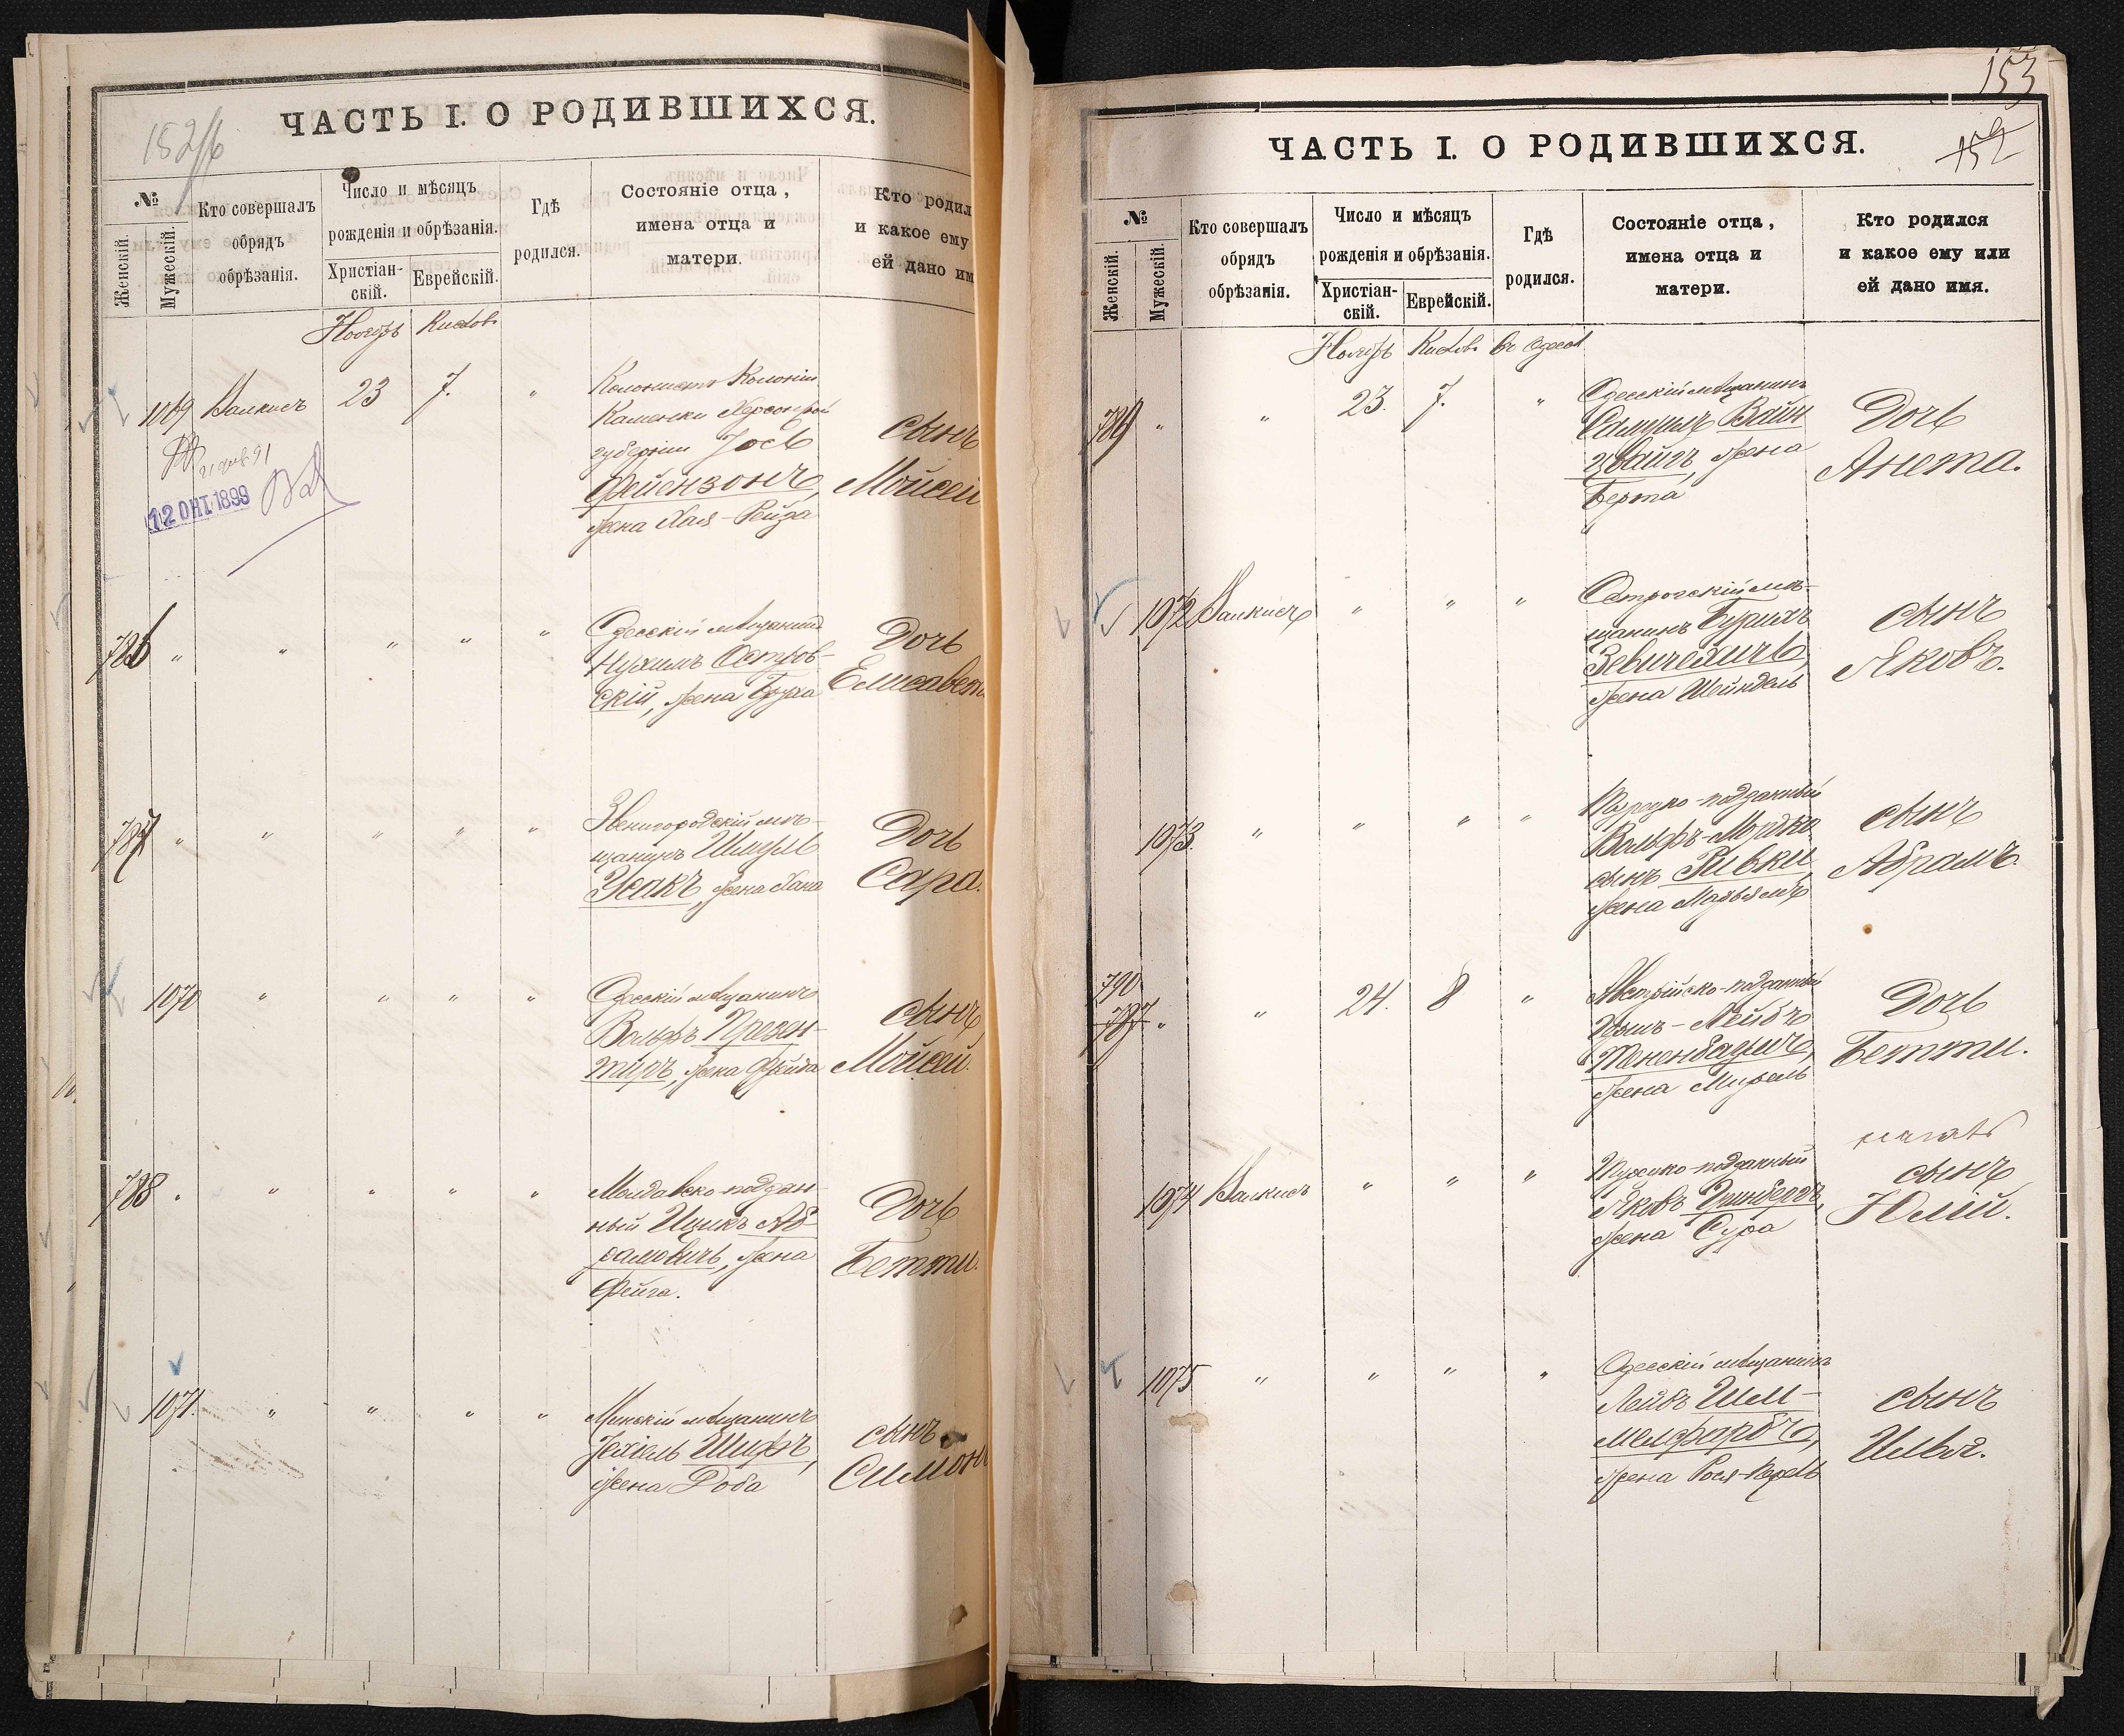 152/б
ЧАСТЬ I. О РОДИВШИХСЯ.
№
Женскій.
Мужескій.
Кто совершалъ
обрядъ
обрѣзанія.
Число и мѣсяцъ
рожденія и обрѣзанія.
Христіан-
скій.
Еврейскій.
Гдѣ
родился.
Состояніе отца,
имена отца и
матери.
Кто родил
и какое ему
ей дано им
Ноябрь Кислов
1069 Валкисъ 23 7. "
Колонистъ Колоніи
Каменки Херсонской
губерніи Іось
Фейензонъ,
жена Хая-Рейза
сынъ
Мойсей
12 ОКТ. 1899
786 " " " " "
Одесскій мѣщанинъ
Нухимъ Остров-
скій, жена Бруха
Дочь
Елисавет
787 " " " " "
Звенигородскій мѣ-
щанинъ Шмуль
Усакъ, жена Хана
Дочь
Сара.
1070 " " " "
Одесскій мѣщанинъ
Вольфъ Презен-
тиръ, жена Фейга
сынъ
Мойсей.
788 " " " " "
Молдавско-поддан-
ный Ицикъ Аб-
рамовичъ, жена
Фейга.
Дочь
Бетти.
1071. " " " "
Минскій мѣщанинъ
Іехіель Шифъ,
жена Доба
сынъ
Симонъ
153
152
ЧАСТЬ I. О РОДИВШИХСЯ.
№
Женскій.
Мужескій.
Кто совершалъ
обрядъ
обрѣзанія.
Число и мѣсяцъ
рожденія и обрѣзанія.
Христіан-
скій.
Еврейскій.
Гдѣ
родился.
Состояніе отца,
имена отца и
матери.
Кто родился
и какое ему или
ей дано имя.
Ноябрь Кислов. въ Одессѣ
789 " " 23. 7. "
Одесскій мѣщанинъ
Самуилъ Вайн-
цвайгъ, жена
Берта
Дочь
Анета.
1072 Валкисъ " " "
Острогскій мѣ-
щанинъ Бурихъ
Зевичехичъ,
жена Шейндель
сынъ
Яковъ.
1073. " " " "
Турецко-подданный
Вольфъ-Мордко
сынъ Ривки
жена Марьямъ
сынъ
Абрамъ.
790
787 " " 24. 8 "
Австрійско-подданный
Хаимъ-Лейбъ
Тененбаумъ,
жена Мирель
Дочь
Бетти.
1074 Валкисъ " " "
Турецко-подданный
Яковъ Гринбергъ,
жена Сура
сынъ
Юлій.
1075 " " " "
Одесскій мѣщанинъ
Лейбъ Шм-
мельфарбъ,
жена Рося-Перель
сынъ
Илья.